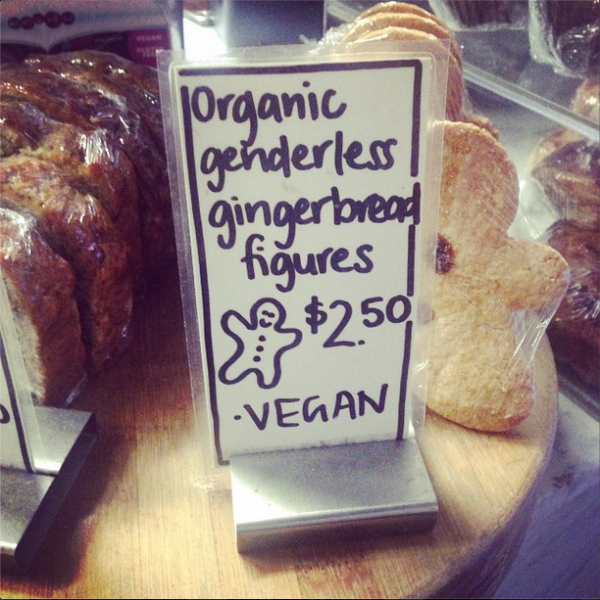 Organic
genderless
gingerbread
figures
$2.50
·VEGAN